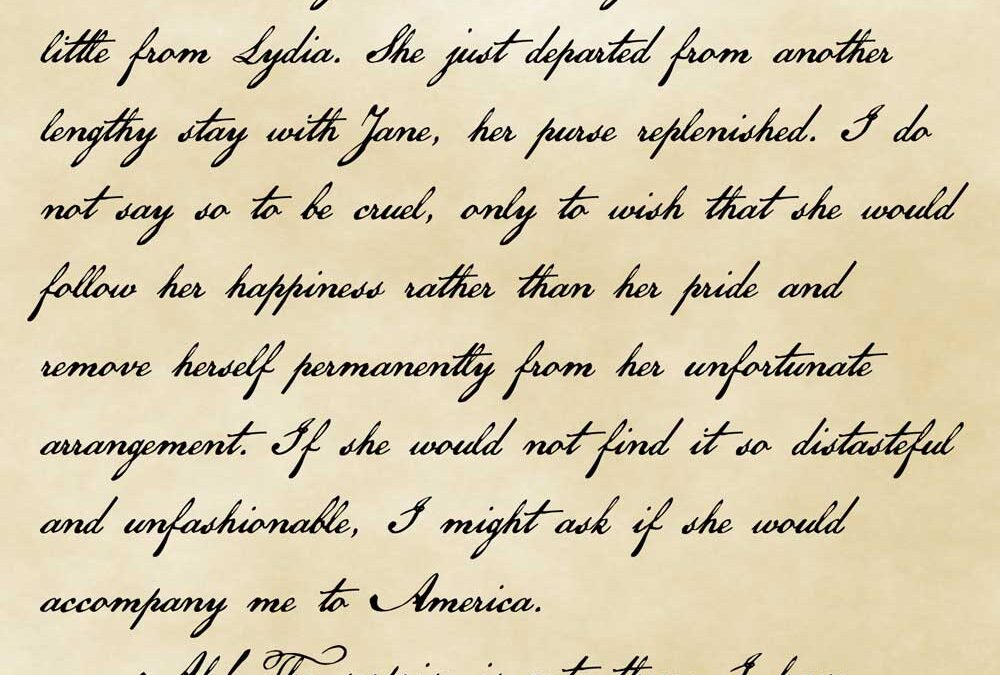 little from Lydia. She just departed from another
lengthy stay with Jane, her purse replenished. I do
not say so to be cruel, only to wish that she would
follow her happiness rather than her pride and
remove herself permanently from her unfortunate
arrangement. If she would not find it so distasteful
and unfashionable, I might ask if she would
accompany me to America.